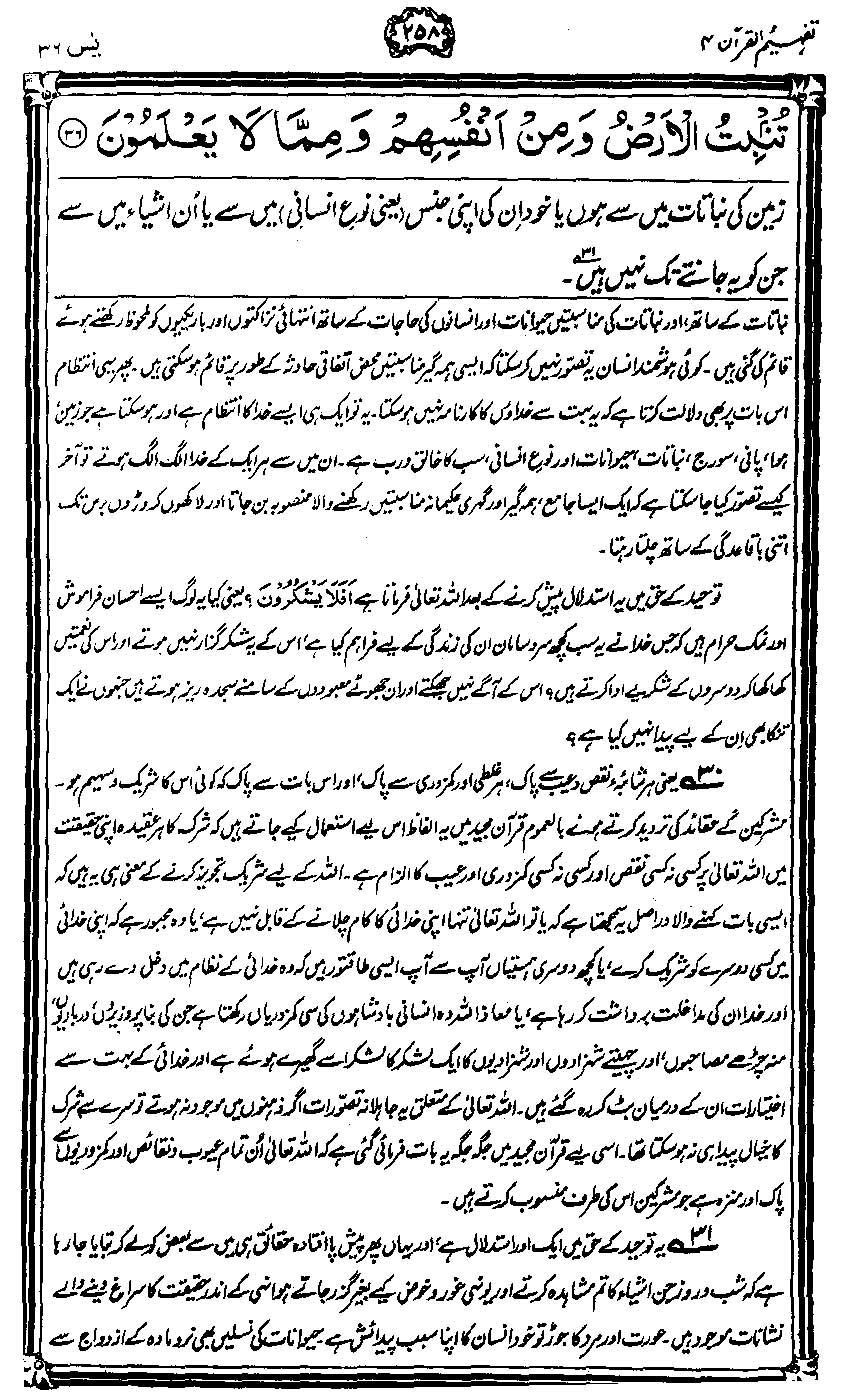 تفہیم القرآن ۴
۲۵۸
یٰس ۳۶
تُنْۢبِتُ الْاَرْضُ وَمِنْ اَنْفُسِهِمْ وَمِمَّا لَا يَعْلَمُوْنَ ﴿۳۶﴾
زمین کی نباتات میں سے ہوں یا خود اِن کی اپنی جنس (یعنی نوعِ انسانی) میں سے یا اُن اشیاء میں سے
جن کو یہ جانتے تک نہیں ہیں۳۱۔
نباتات کے ساتھ، اور نباتات کی مناسبتیں حیوانات اور انسانوں کی حاجات کے ساتھ انتہائی نزاکتوں اور باریکیوں کو ملحوظ رکھتے ہوئے
قائم کی گئی ہیں۔ کوئی ہوشمند انسان یہ تصوّر نہیں کر سکتا کہ ایسی ہمہ گیر مناسبتیں محض اتفاقی حادثہ کے طور پر قائم ہو سکتی ہیں۔ پھر یہی انتظام
اس بات پر بھی دلالت کرتا ہے کہ یہ بہت سے خداؤں کا کارنامہ نہیں ہو سکتا۔ یہ تو ایک ہی ایسے خدا کا انتظام ہے اور ہو سکتا ہے جو زمین،
ہوا، پانی، سورج، نباتات، حیوانات اور نوعِ انسانی، سب کا خالق و رب ہے۔ ان میں سے ہر ایک کے خدا الگ الگ ہوتے تو آخر
کیسے تصوّر کیا جا سکتا ہے کہ ایک ایسا جامع، ہمہ گیر اور گہری حکیمانہ مناسبتیں رکھنے والا منصوبہ بن جاتا اور لاکھوں کروڑوں برس تک
اتنی باقاعدگی کے ساتھ چلتا رہتا۔
توحید کے حق میں یہ استدلال پیش کرنے کے بعد اللہ تعالیٰ فرماتا ہے اَفَلَا يَشْكُرُوْنَ؟ یعنی کیا یہ لوگ ایسے احسان فراموش
اور نمک حرام ہیں کہ جس خدا نے یہ سب کچھ سروسامان ان کی زندگی کے لیے فراہم کیا ہے، اس کے یہ شکر گزار نہیں ہوتے اور اس کی نعمتیں
کھا کھا کر دوسروں کے شکریے ادا کرتے ہیں؟ اس کے آگے نہیں جھکتے اور ان جھوٹے معبودوں کے سامنے سجدہ ریز ہوتے ہیں جنہوں نے ایک
تنکا بھی اِن کے لیے پیدا نہیں کیا ہے؟
۳۰ یعنی ہر شائبۂ نقص و عیب سے پاک، ہر غلطی اور کمزوری سے پاک، اور اس بات سے پاک کہ کوئی اس کا شریک و سہیم ہو۔
مشرکین کے عقائد کی تردید کرتے ہوئے بالعموم قرآن مجید میں یہ الفاظ اس لیے استعمال کیے جاتے ہیں کہ شرک کا ہر عقیدہ اپنی حقیقت
میں اللہ تعالیٰ پر کسی نہ کسی نقص اور کسی نہ کسی کمزوری اور عیب کا الزام ہے۔ اللہ کے لیے شریک تجویز کرنے کے معنی ہی یہ ہیں کہ
ایسی بات کہنے والا دراصل یہ سمجھتا ہے کہ یا تو اللہ تعالیٰ تنہا اپنی خدائی کا کام چلانے کے قابل نہیں ہے، یا وہ مجبور ہے کہ اپنی خدائی
میں کسی دوسرے کو شریک کرے، یا کچھ دوسری ہستیاں آپ سے آپ ایسی طاقتور ہیں کہ وہ خدائی کے نظام میں دخل دے رہی ہیں
اور خدا ان کی مداخلت برداشت کر رہا ہے، یا معاذ اللہ وہ انسانی بادشاہوں کی سی کمزوریاں رکھتا ہے جن کی بنا پر وزیروں، درباریوں،
منہ چڑھے مصاحبوں، اور چہیتے شہزادوں اور شہزادیوں کا ایک لشکر کا لشکر اسے گھیرے ہوئے ہے اور خدائی کے بہت سے
اختیارات ان کے درمیان بٹ کر رہ گئے ہیں۔ اللہ تعالیٰ کے متعلق یہ جاہلانہ تصوّرات اگر ذہنوں میں موجود نہ ہوتے تو سرے سے شرک
کا خیال پیدا ہی نہ ہو سکتا تھا۔ اسی لیے قرآن مجید میں جگہ جگہ یہ بات فرمائی گئی ہے کہ اللہ تعالیٰ اُن تمام عیوب و نقائص اور کمزوریوں سے
پاک اور منزہ ہے جو مشرکین اس کی طرف منسوب کرتے ہیں۔
۳۱ یہ توحید کے حق میں ایک اور استدلال ہے، اور یہاں پھر پیش پا افتادہ حقائق ہی میں سے بعض کو لے کر بتایا جا رہا
ہے کہ شب و روز جن اشیاء کا تم مشاہدہ کرتے اور یونہی غور و خوض کیے بغیر گزر جاتے ہو انہی کے اندر حقیقت کا سراغ دینے والے
نشانات موجود ہیں۔ عورت اور مرد کا جوڑ تو خود انسان کا اپنا سببِ پیدائش ہے۔ حیوانات کی نسلیں بھی نر و مادہ کے ازدواج سے